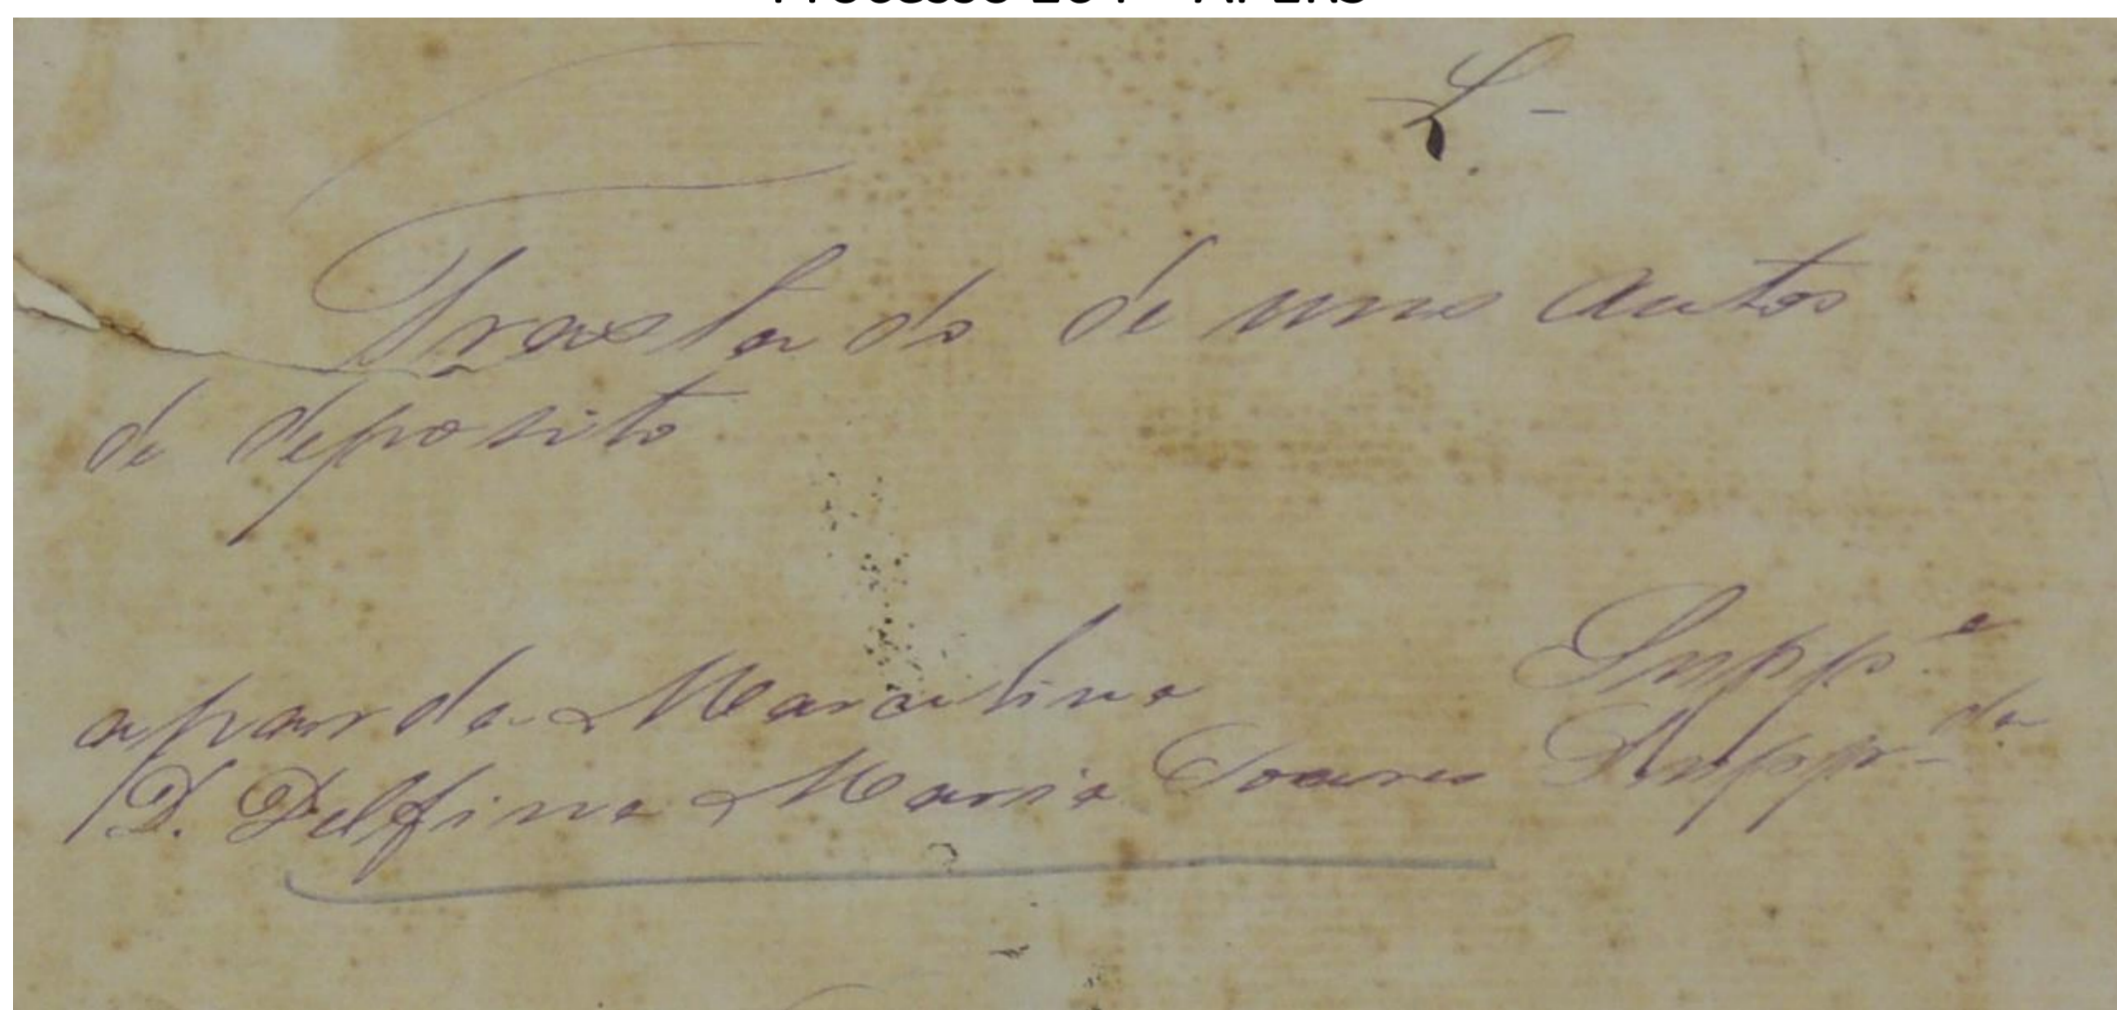 L -
Traslado de uns autos
de deposito
a parda Marculina Supp.e
D. Delfina Maria Soares Supp.da